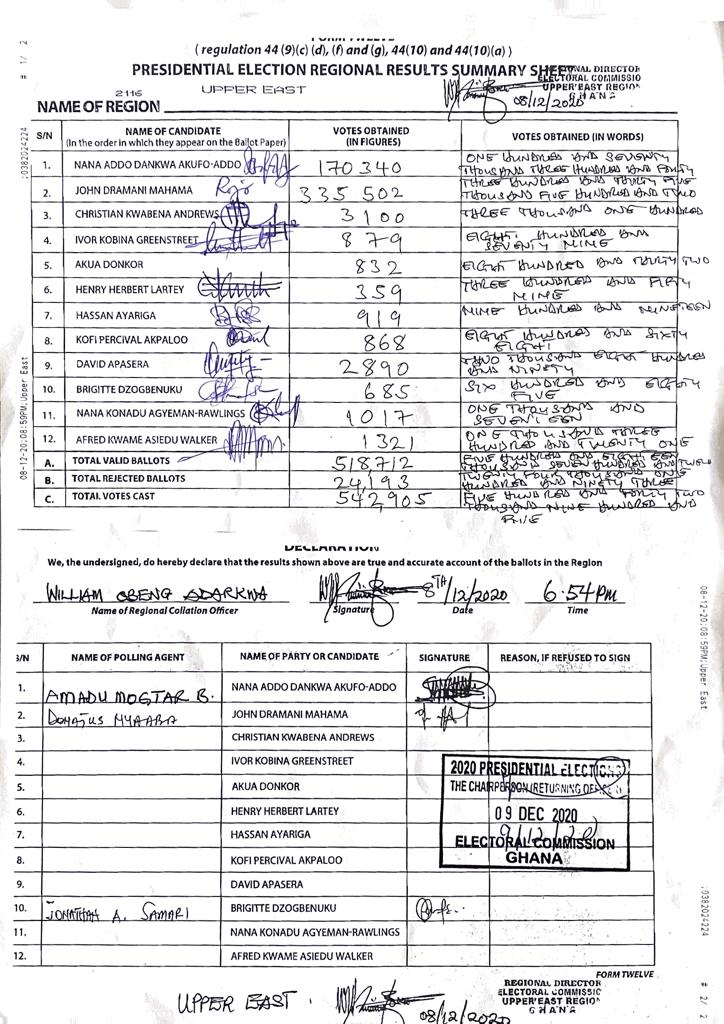 # 1/ 2
FORM TWELVE
( regulation 44 (9)(c) (d), (f) and (g), 44(10) and 44(10)(a) )
PRESIDENTIAL ELECTION REGIONAL RESULTS SUMMARY SHEET
REGIONAL DIRECTOR
ELECTORAL COMMISSIO
UPPER EAST REGION
GHANA
08/12/2020
2116 UPPER EAST
NAME OF REGION
:0382024224
08-12-20;08:59PM;Upper East
S/N NAME OF CANDIDATE (In the order in which they appear on the Ballot Paper) VOTES OBTAINED (IN FIGURES) VOTES OBTAINED (IN WORDS)
1. NANA ADDO DANKWA AKUFO-ADDO 170340 ONE HUNDRED AND SEVENTY
THOUSAND THREE HUNDRED AND FORTY
2. JOHN DRAMANI MAHAMA 335502 THREE HUNDRED AND THIRTY FIVE
THOUSAND FIVE HUNDRED AND TWO
3. CHRISTIAN KWABENA ANDREWS 3100 THREE THOUSAND ONE HUNDRED
4. IVOR KOBINA GREENSTREET 879 EIGHT HUNDRED AND
SEVENTY NINE
5. AKUA DONKOR 832 EIGHT HUNDRED AND THIRTY TWO
6. HENRY HERBERT LARTEY 359 THREE HUNDRED AND FIFTY
NINE
7. HASSAN AYARIGA 919 NINE HUNDRED AND NINETEEN
8. KOFI PERCIVAL AKPALOO 868 EIGHT HUNDRED AND SIXTY
EIGHT
9. DAVID APASERA 2890 TWO THOUSAND EIGHT HUNDRED
AND NINETY
10. BRIGITTE DZOGBENUKU 685 SIX HUNDRED AND EIGHTY
FIVE
11. NANA KONADU AGYEMAN-RAWLINGS 1017 ONE THOUSAND AND
SEVENTEEN
12. AFRED KWAME ASIEDU WALKER 1321 ONE THOUSAND THREE
HUNDRED AND TWENTY ONE
A. TOTAL VALID BALLOTS 518712 FIVE HUNDRED AND EIGHTEEN
THOUSAND SEVEN HUNDRED AND TWELVE
B. TOTAL REJECTED BALLOTS 24,193 TWENTY FOUR THOUSAND ONE
HUNDRED AND NINETY THREE
C. TOTAL VOTES CAST 542905 FIVE HUNDRED AND FORTY TWO
THOUSAND NINE HUNDRED AND
FIVE
DECLARATION
We, the undersigned, do hereby declare that the results shown above are true and accurate account of the ballots in the Region
WILLIAM OBENG ADARKWA 8TH/12/2020 6:54PM
Name of Regional Collation Officer Signature Date Time
S/N NAME OF POLLING AGENT NAME OF PARTY OR CANDIDATE SIGNATURE REASON, IF REFUSED TO SIGN
1. AMADU MOGTAR B. NANA ADDO DANKWA AKUFO-ADDO
2. DONATUS NYAABA JOHN DRAMANI MAHAMA
3. CHRISTIAN KWABENA ANDREWS
4. IVOR KOBINA GREENSTREET
5. AKUA DONKOR
6. HENRY HERBERT LARTEY
7. HASSAN AYARIGA
8. KOFI PERCIVAL AKPALOO
9. DAVID APASERA
10. JONATHAN A. SAMARI BRIGITTE DZOGBENUKU
11. NANA KONADU AGYEMAN-RAWLINGS
12. AFRED KWAME ASIEDU WALKER
2020 PRESIDENTIAL ELECTIONS
THE CHAIRPERSON/RETURNING OFFICER
09 DEC 2020
9/12/20
ELECTORAL COMMISSION
GHANA
FORM TWELVE
UPPER EAST. 08/12/2020
REGIONAL DIRECTOR
ELECTORAL COMMISSIO
UPPER EAST REGION
GHANA
08-12-20;08:59PM;Upper East
:0382024224
# 2/ 2